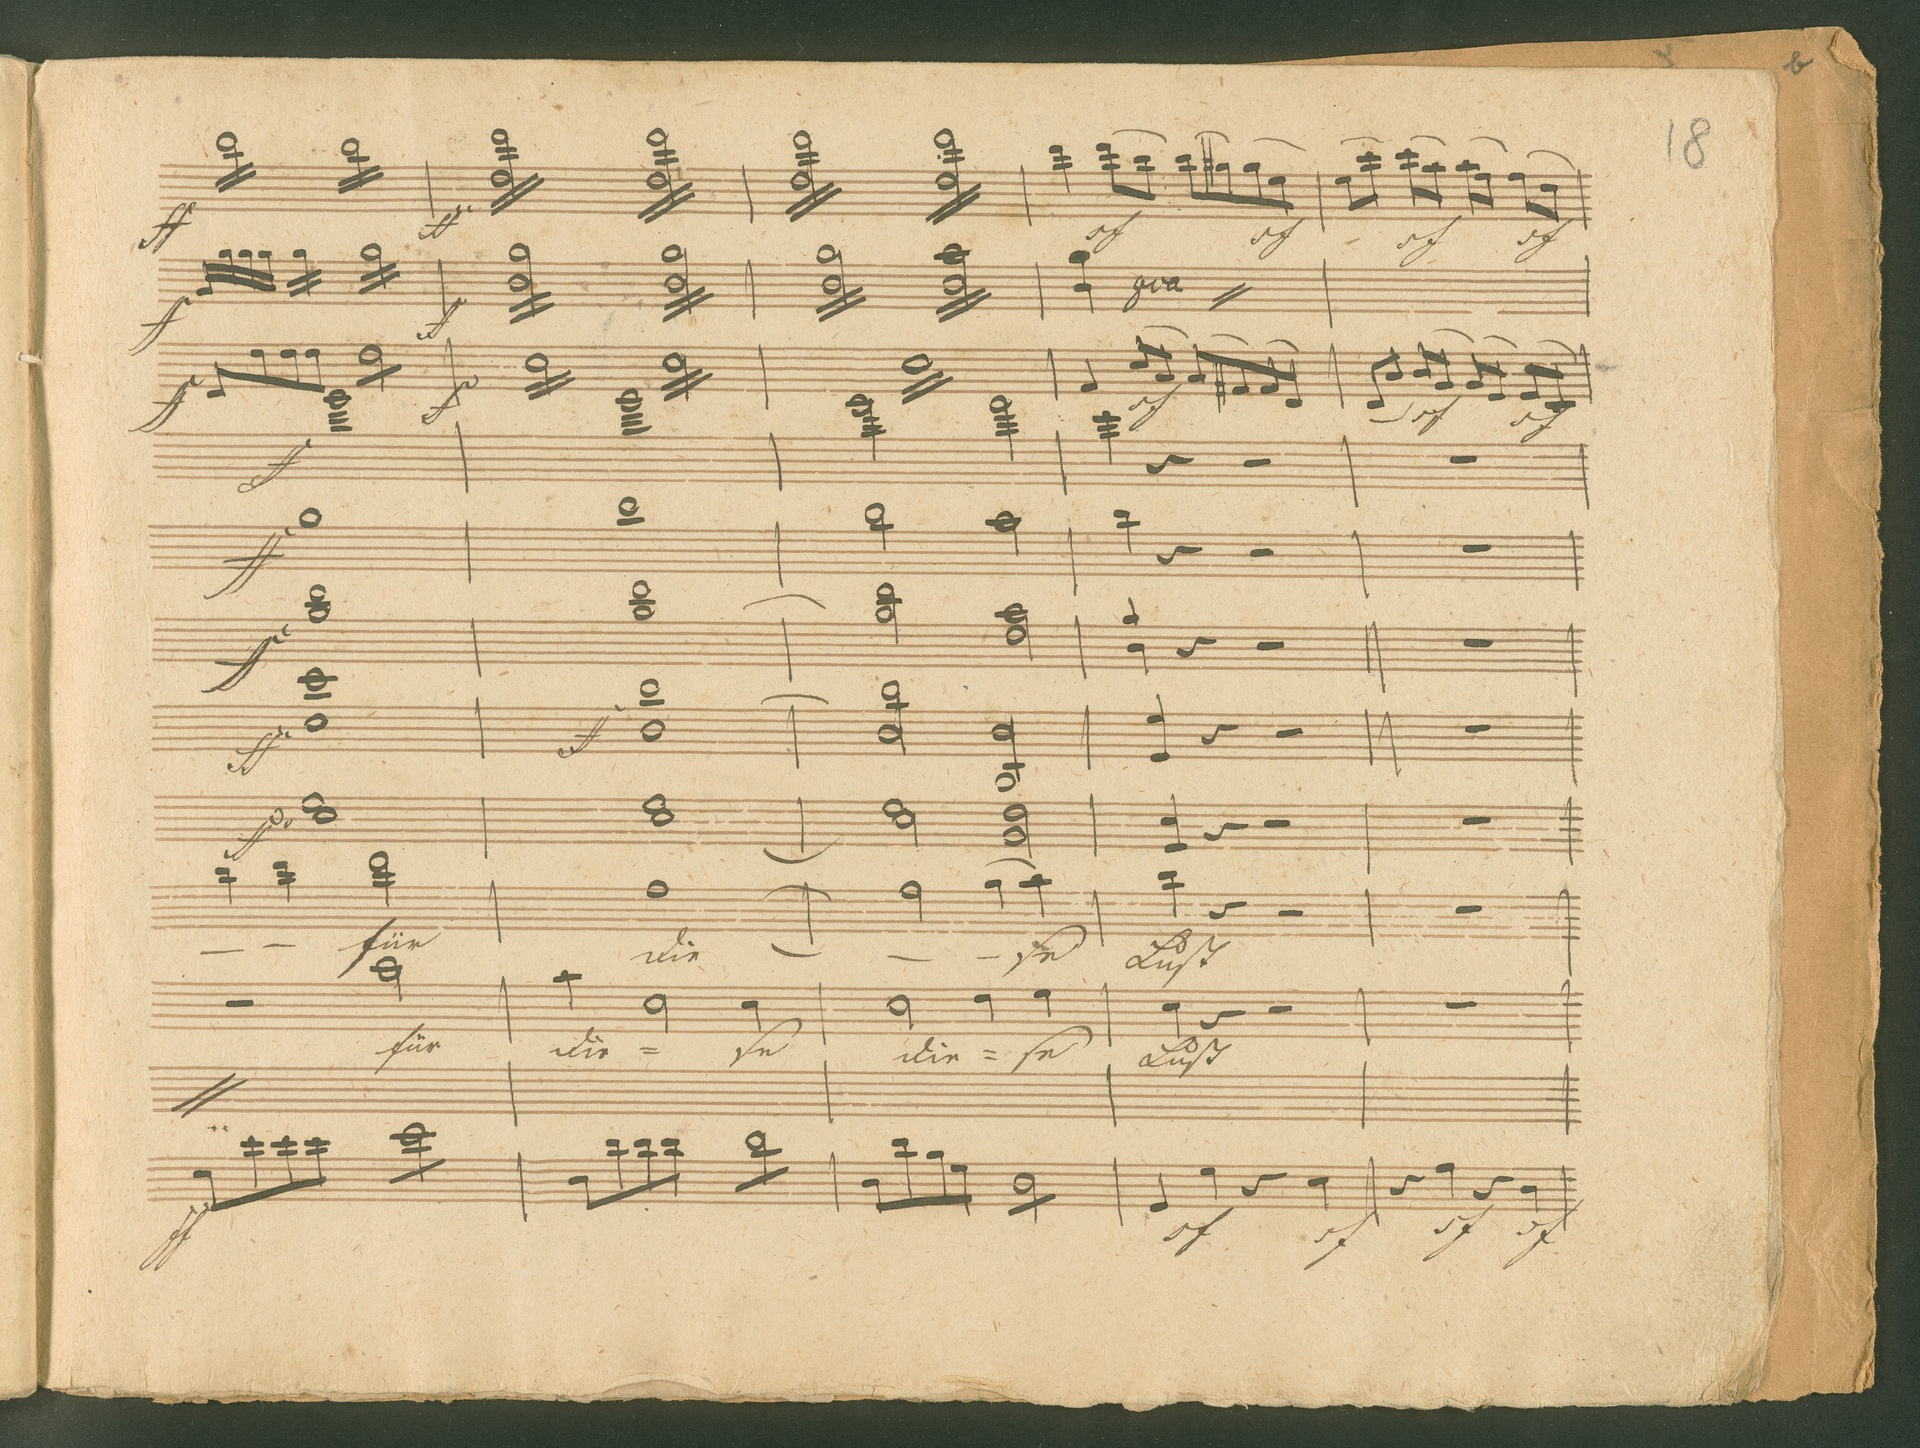 18
ff ff
sf sf sf sf
f f
8va
f f sf sf sf
ff
ff
ff
ff ff
für die - - se Lust
für die = se die = se Lust
ff sf sf sf sf